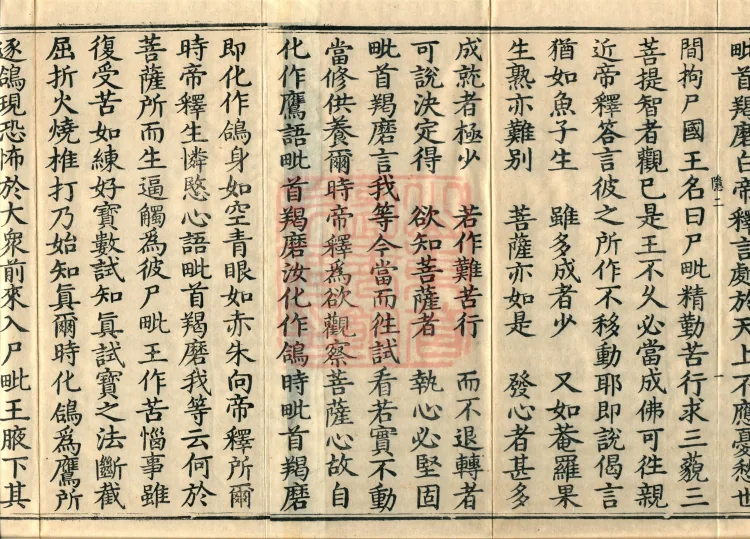 毗首羯磨白帝釋言處於天上不應憂愁世
間拘尸國王名曰尸毗精勤苦行求三藐三
菩提智者觀已是王不久必當成佛可往親
近帝釋荅言彼之所作不移動耶即說偈言
猶如魚子生　雖多成者少　又如菴羅果
生熟亦難別　菩薩亦如是　發心者甚多
成就者極少　若作難苦行　而不退轉者
可說決定得　欲知菩薩者　執心必堅固
毗首羯磨言我等今當而往試看若實不動
當修供養爾時帝釋為欲觀察菩薩心故自
化作鷹語毗首羯磨汝化作鴿時毗首羯磨
即化作鴿身如空青眼如赤朱向帝釋所爾
時帝釋生憐愍心語毗首羯磨我等云何於
菩薩所而生逼觸為彼尸毗王作苦惱事雖
復受苦如練好寶數試知真試寶之法斷截
屈折火燒椎打乃始知真爾時化鴿為鷹所
逐鴿現恐怖於大眾前來入尸毗王腋下其
隨二